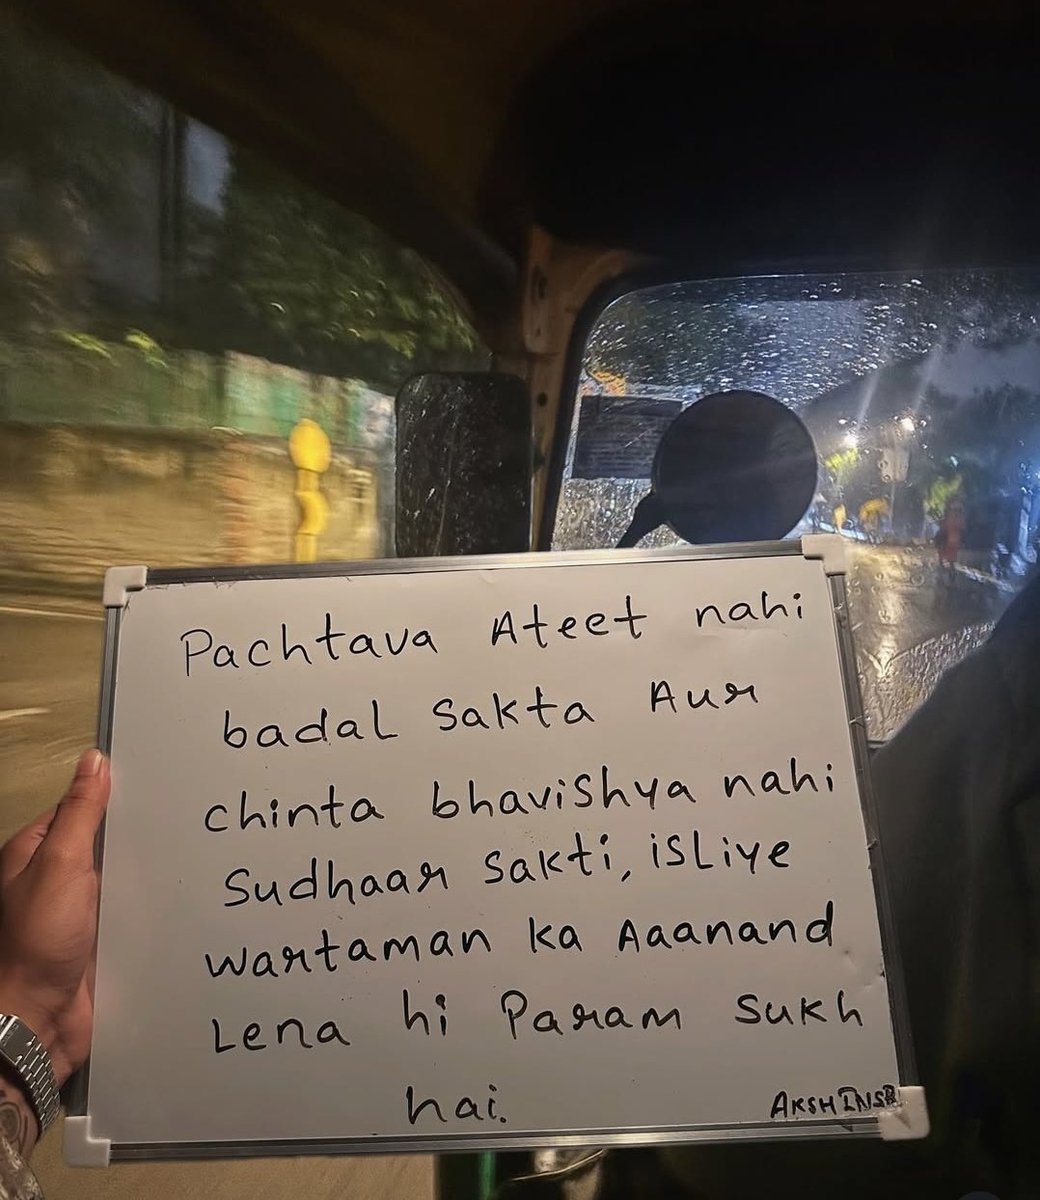 Pachtava Ateet nahi
badal sakta Aur
chinta bhavishya nahi
Sudhaar sakti, isliye
wartaman ka Aaanand
Lena hi Param sukh
hai.